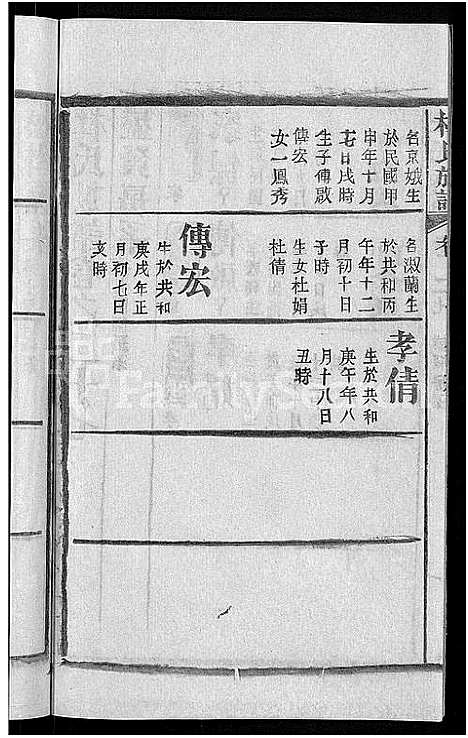 名京娥生
於民國甲
申年十月
廿日戌時
生子傅啟
傅宏
女一鳳秀
名淑蘭生
於共和丙
午年十二
月初十日
子時
生女杜娟
杜倩
傳宏
生於共和
庚戌年正
月初七日
亥時
孝倩
生於共和
庚午年八
月十八日
丑時
氏族譜
卷